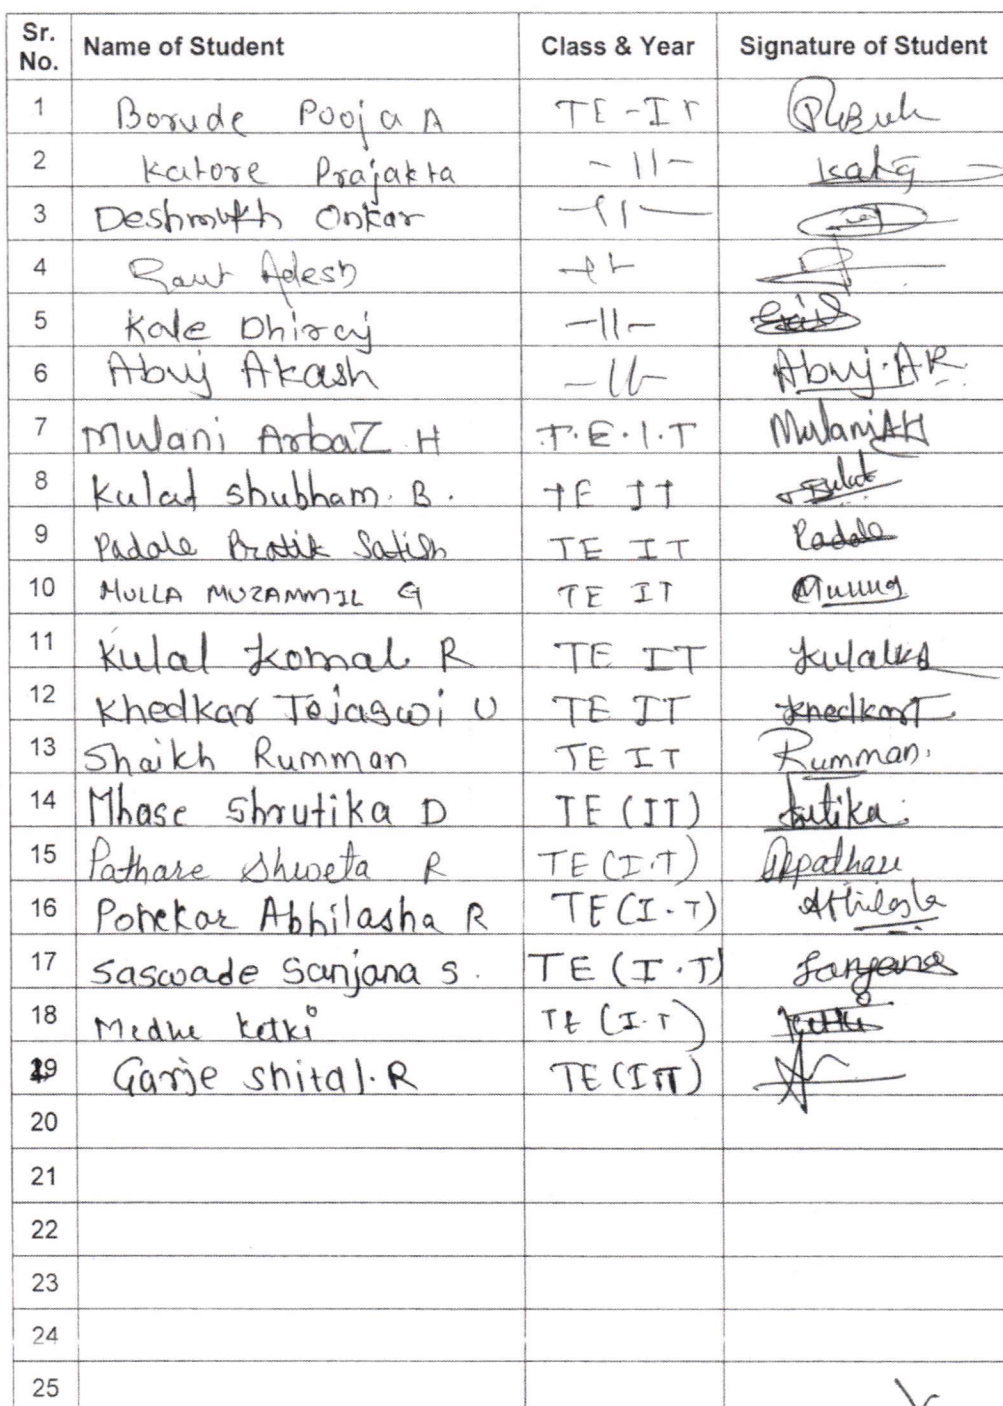 Sr. No. Name of Student Class & Year Signature of Student
1 Borude Pooja A TE-IT
2 Katore Prajakta -11-
3 Deshmukh Onkar -11-
4 Raut Adesh -11-
5 Kale Dhiraj -11-
6 Abuj Akash -11- Abuj.AR.
7 Mulani ArbaZ H T.E.I.T MulaniAH
8 Kulat shubham. B. TE IT Kulat
9 Padale Pratik Satish TE IT Padale
10 MULLA MUZAMMIL G TE IT
11 Kulal Komal R TE IT
12 Khedkar Tejaswi U TE IT KhedkarT
13 Shaikh Rumman TE IT Rumman.
14 Mhase Shrutika D TE (IT)
15 Pathare Shweta R TE (I.T)
16 Potekar Abhilasha R TE (I.T) Abhilasha
17 Saswade Sanjana S. TE (I.T) Sanjana
18 Medhe Ketki TE (I.T) Ketki
19 Garje Shital.R TE (IT)
20
21
22
23
24
25